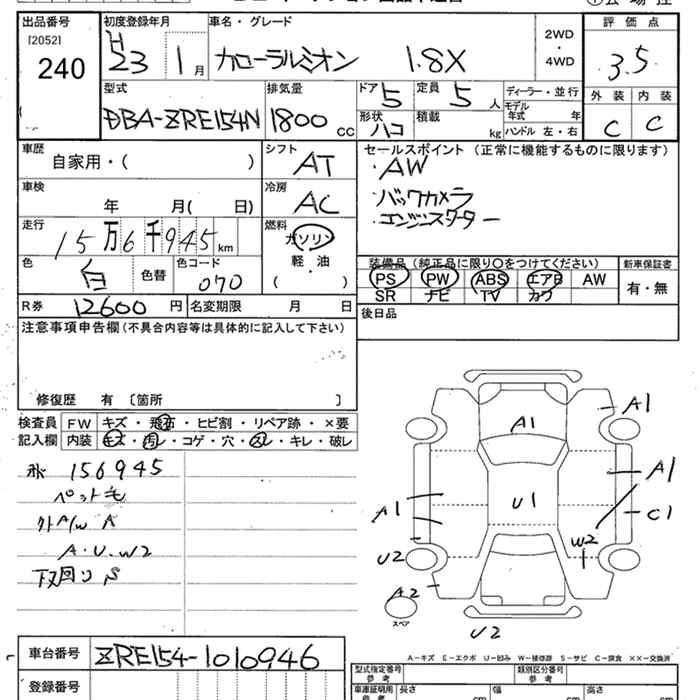 出品番号 初度登録年月 車名・グレード 2WD ・ 4WD 評価点
[2052]
240
H 23 1月 カローラルミオン 1.8X 3.5
型式 排気量 ドア 5 定員 5人 ディーラー・並行 外装 内装
DBA-ZRE154N 1800 CC 形状 ハコ 積載 kg モデル年式 年 C C
ハンドル 左・右
車歴 自家用・( ) シフト AT セールスポイント (正常に機能するものに限ります)
・AW
車検 年 月( 日) 冷房 AC ・バックカメラ
・エンジンスターター
走行 15万6千945km 燃料 ガソリン
軽・油
( )
色 白 色替 色コード 070
装備品 (純正品に限り〇をつけてください) 新車保証書
PS PW ABS エアB AW 有・無
SR ナビ TV カワ
R券 12600円 名変期限 月 日 後日品
注意事項申告欄(不具合内容等は具体的に記入して下さい)
修復歴 有 〔箇所 〕
検査員 FW キズ・飛石・ヒビ割・リペア跡・×要
記入欄 内装 キズ・汚レ・コゲ・穴・スレ・キレ・破レ
156945
ペット毛
外A/W A
A・U・W2
下回り S
A1
A1
A1
A1
U1
C1
W2
U2
A2
スペア
U2
A-キズ E-エクボ U-凹み W-補修跡 S-サビ C-腐食 XX-交換済
車台番号 ZRE154-1010946
登録番号
型式指定番号 参考 類別区分番号 参考
車庫証明用 参考 長さ cm 幅 cm 高さ cm